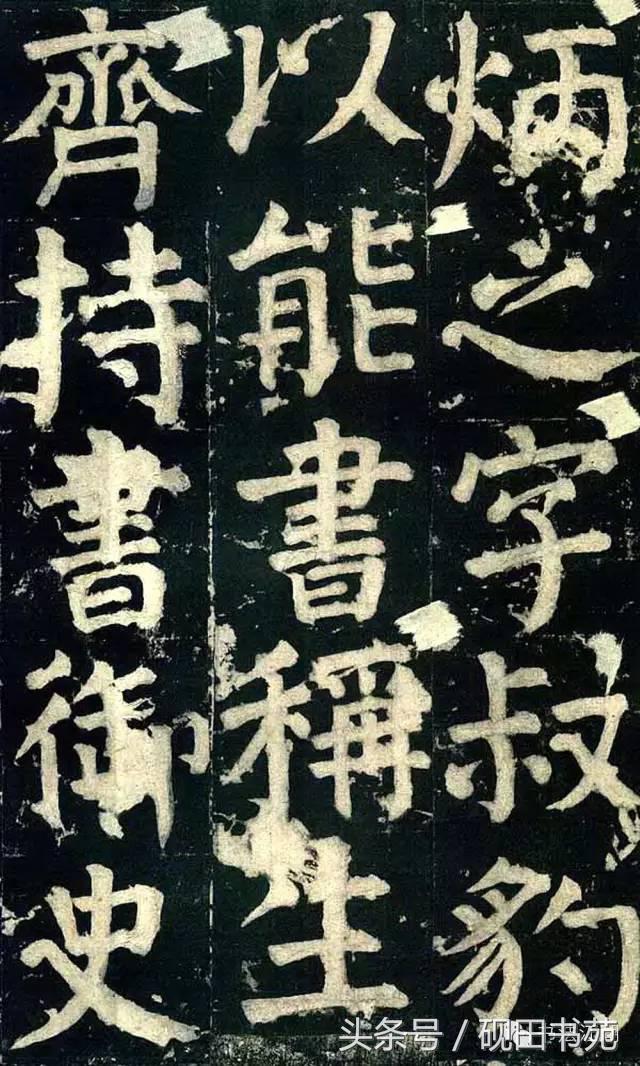 炳之字叔豹
以能書稱生
齊持書御史
头条号 / 砚田书苑